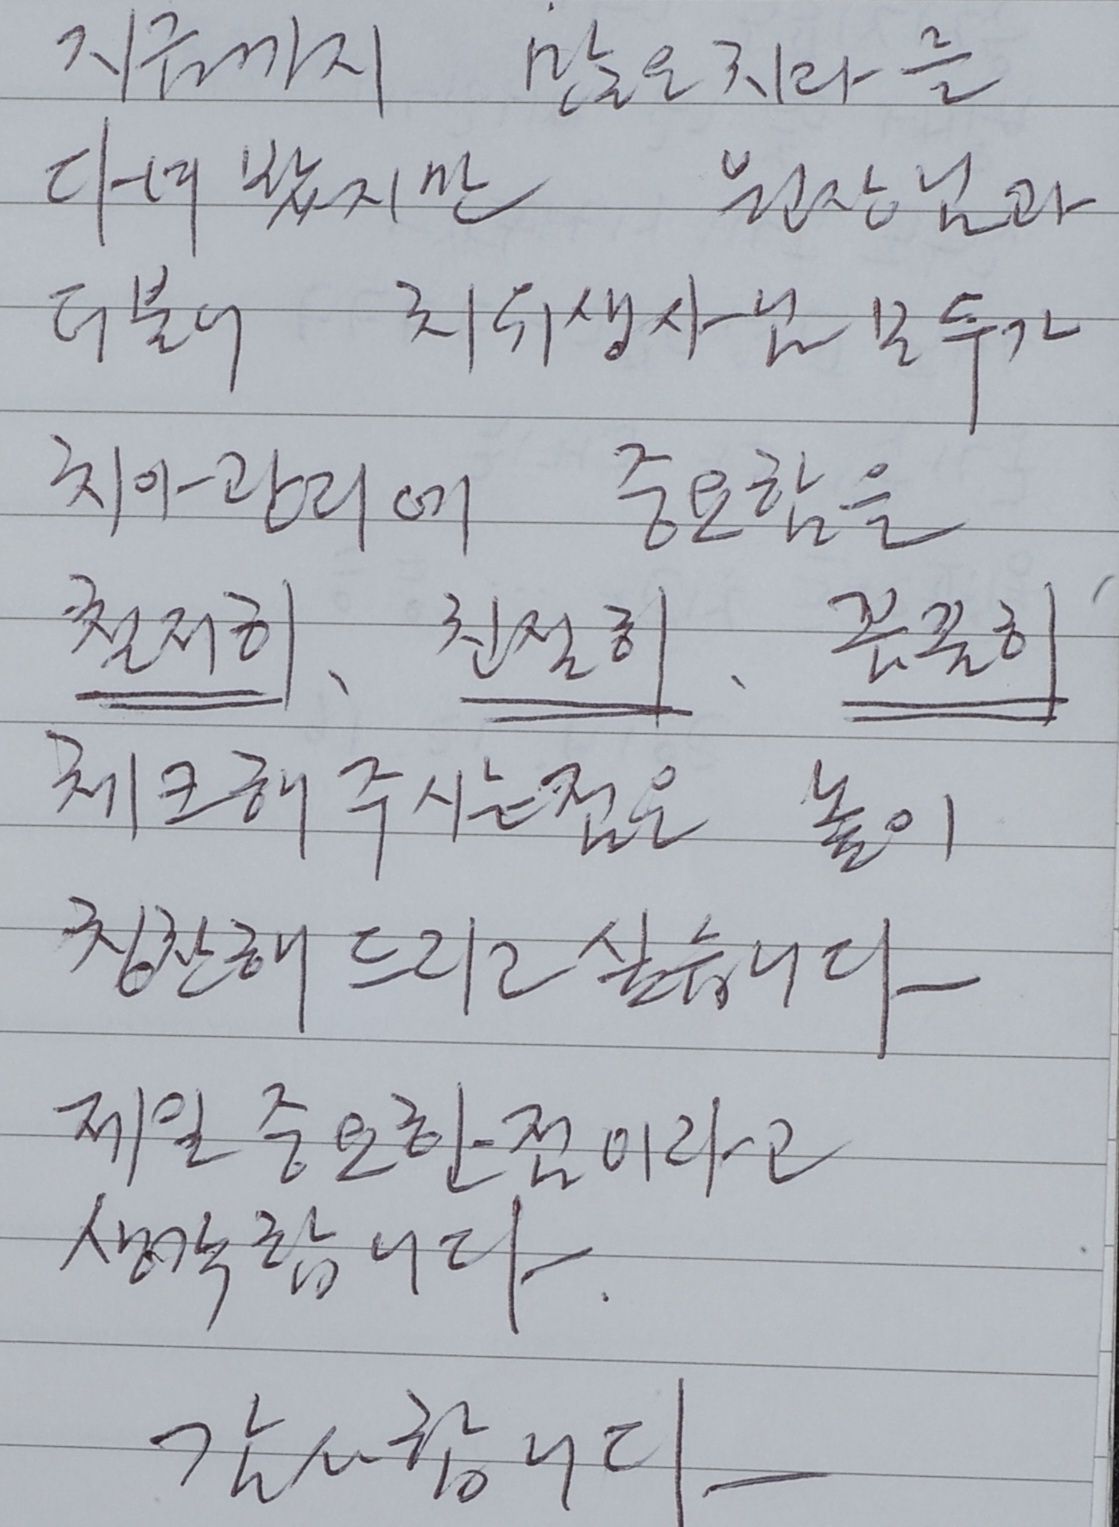 지금까지 많은 치과를
다녀 봤지만 원장님과
더불어 치위생사님 모두가
치아관리에 중요함을
철저히、 친절히、 꼼꼼히
체크해 주시는점은 높이
칭찬해 드리고 싶습니다
제일 중요한 점이라고
생각합니다.
감사합니다